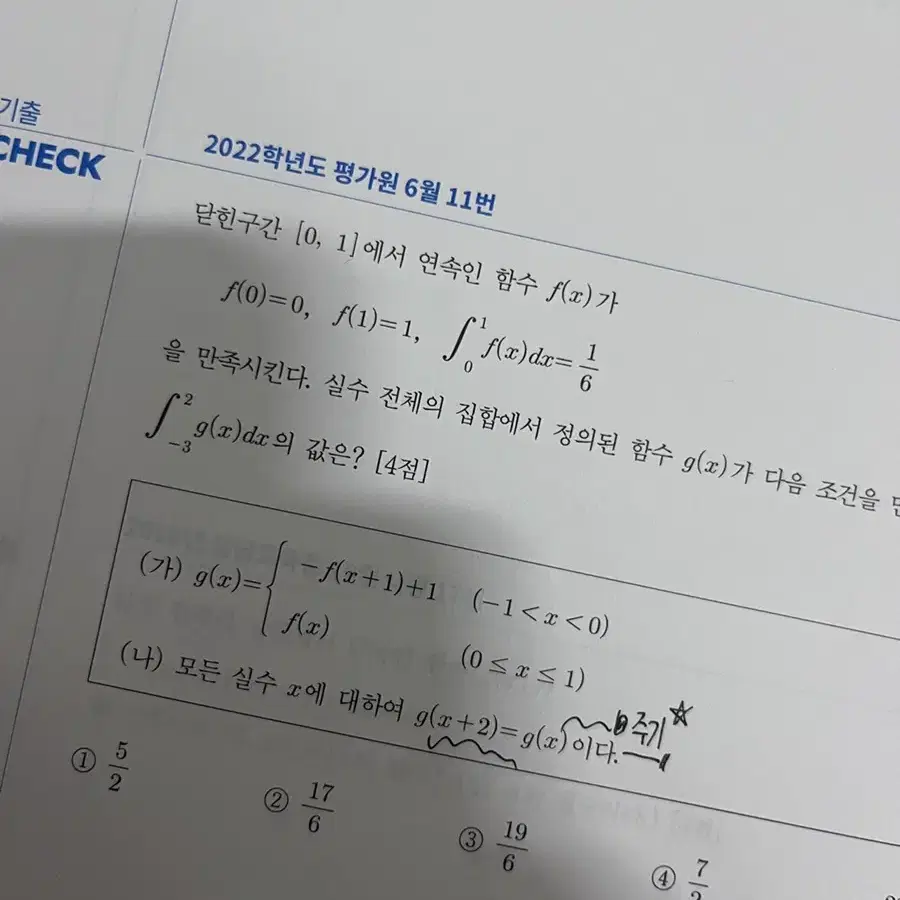 기출
CHECK
2022학년도 평가원 6월 11번
닫힌구간 [0, 1]에서 연속인 함수 f(x)가
f(0)=0, f(1)=1, ∫₀¹ f(x)dx=1/6
을 만족시킨다. 실수 전체의 집합에서 정의된 함수 g(x)가 다음 조건을
∫₋₃² g(x)dx의 값은? [4점]
(가) g(x)={ -f(x+1)+1 (-1<x<0)
f(x) (0≤x≤1)
(나) 모든 실수 x에 대하여 g(x+2)=g(x)이다. 주기☆
① 5/2
② 17/6
③ 19/6
④ 7/2